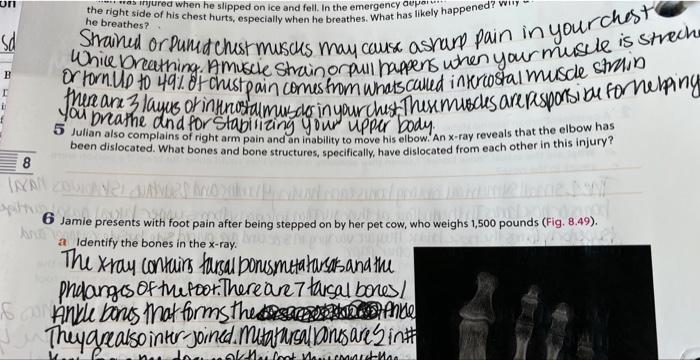 was injured when he slipped on ice and fell. In the emergency
the right side of his chest hurts, especially when he breathes. What has likely happened? Why
he breathes?
Strained or pulled chest muscles may cause a sharp pain in your chest
While breathing. A muscle strain or pull happens when your muscle is
or torn. Up to 49% of chest pain comes from whats called intercostal muscle strain
there are 3 layers of intercostal muscles in your chest. These muscles are responsible for helping
you breathe and for stabilizing your upper body.
5 Julian also complains of right arm pain and an inability to move his elbow. An x-ray reveals that the elbow has
been dislocated. What bones and bone structures, specifically, have dislocated from each other in this injury?
8
6 Jamie presents with foot pain after being stepped on by her pet cow, who weighs 1,500 pounds (Fig. 8.49).
a Identify the bones in the x-ray.
The xray contains tarsal bones metatarsals and the
phalanges of the foot. There are 7 tarsal bones/
Ankle bones that forms the Ankle
They are also inter-joined. Metatarsal bones are 5 in #